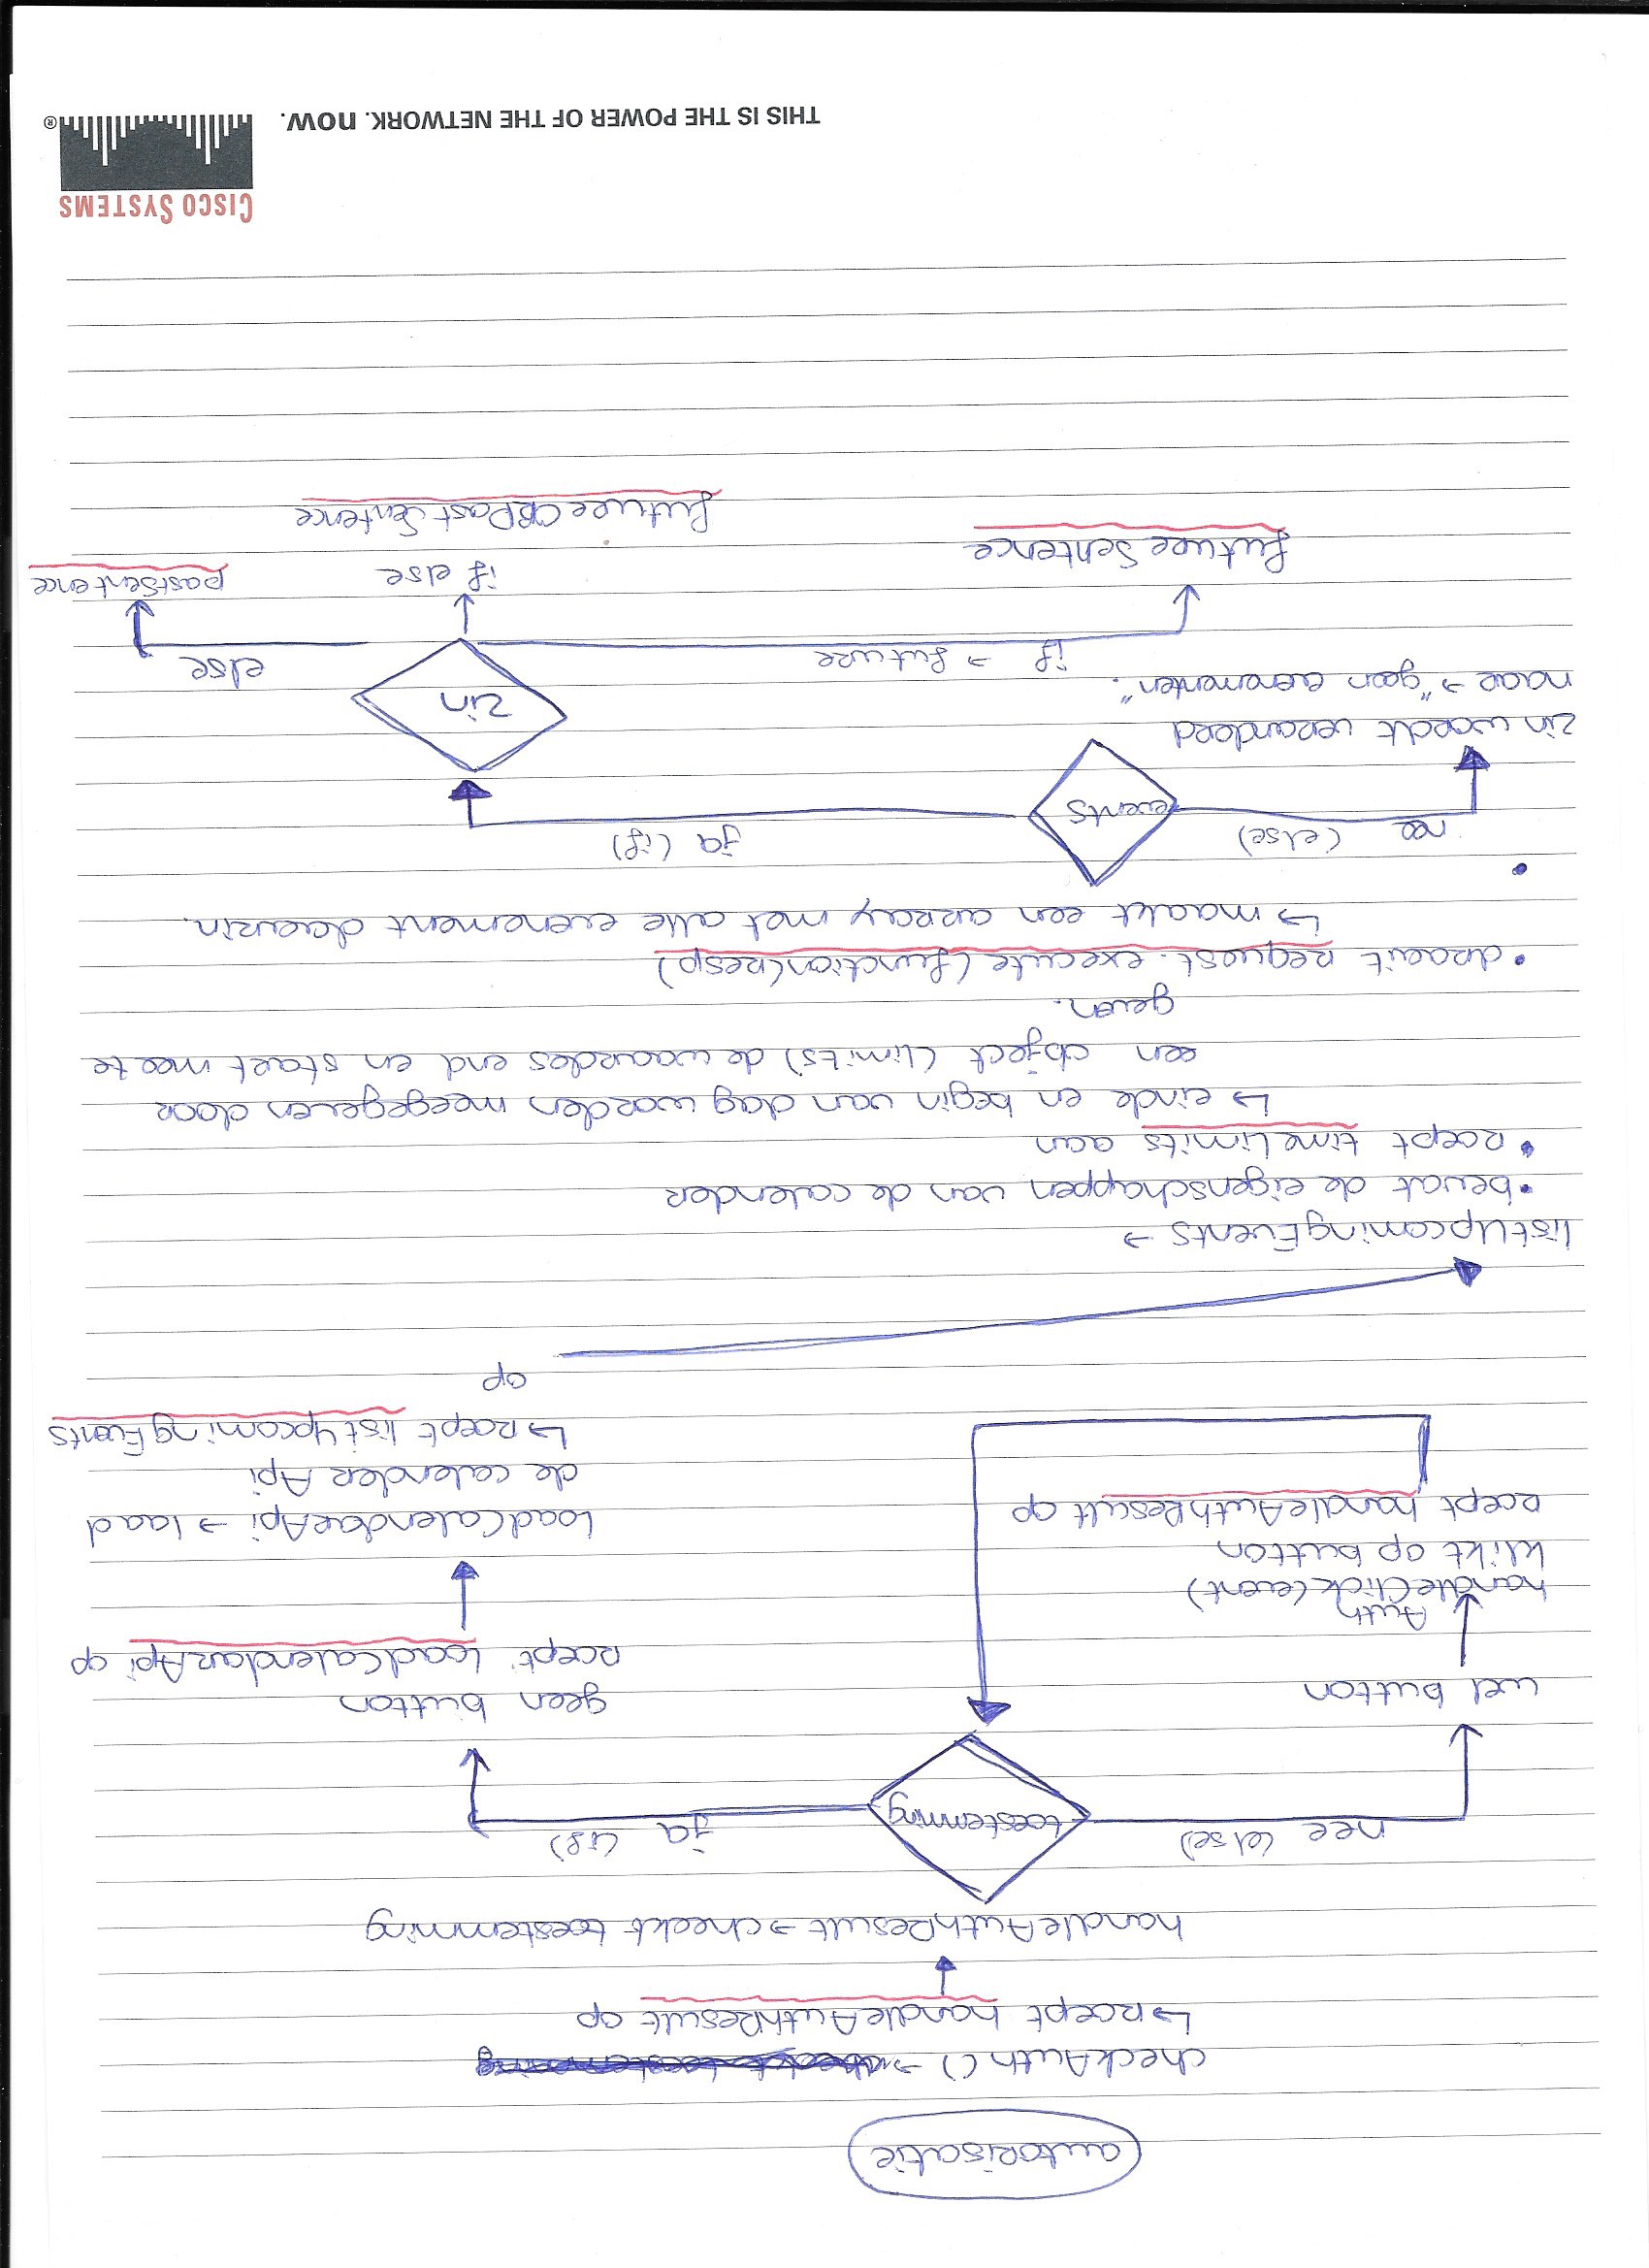 autorisatie
checkAuth () →
↳ roept handleAuthResult op
handleAuthResult → checkt toestemming
nee (else)
toestemming
ja (if)
wel button
geen button
roept loadCalendarApi op
Auth
handleClick (event)
klikt op button
roept handleAuthResult op
LoadCalendarApi → laad
de calender Api
↳ roept listUpcomingEvents
op
listUpcomingEvents →
• bevat de eigenschappen van de calender
• roept timeLimits aan
↳ einde en begin van dag worden meegegeven door
een object (limits) de waardes end en start mee te
geven.
• draait request.execute (function(resp)
↳ maakt een array met alle evenement daarin.
•
nee (else)
events
ja (if)
zin wordt veranderd
naar → "geen evenementen".
zin
if → future
else
futureSentence
if else
pastSentence
futureORPastSentence
CISCO SYSTEMS
THIS IS THE POWER OF THE NETWORK. now.
®